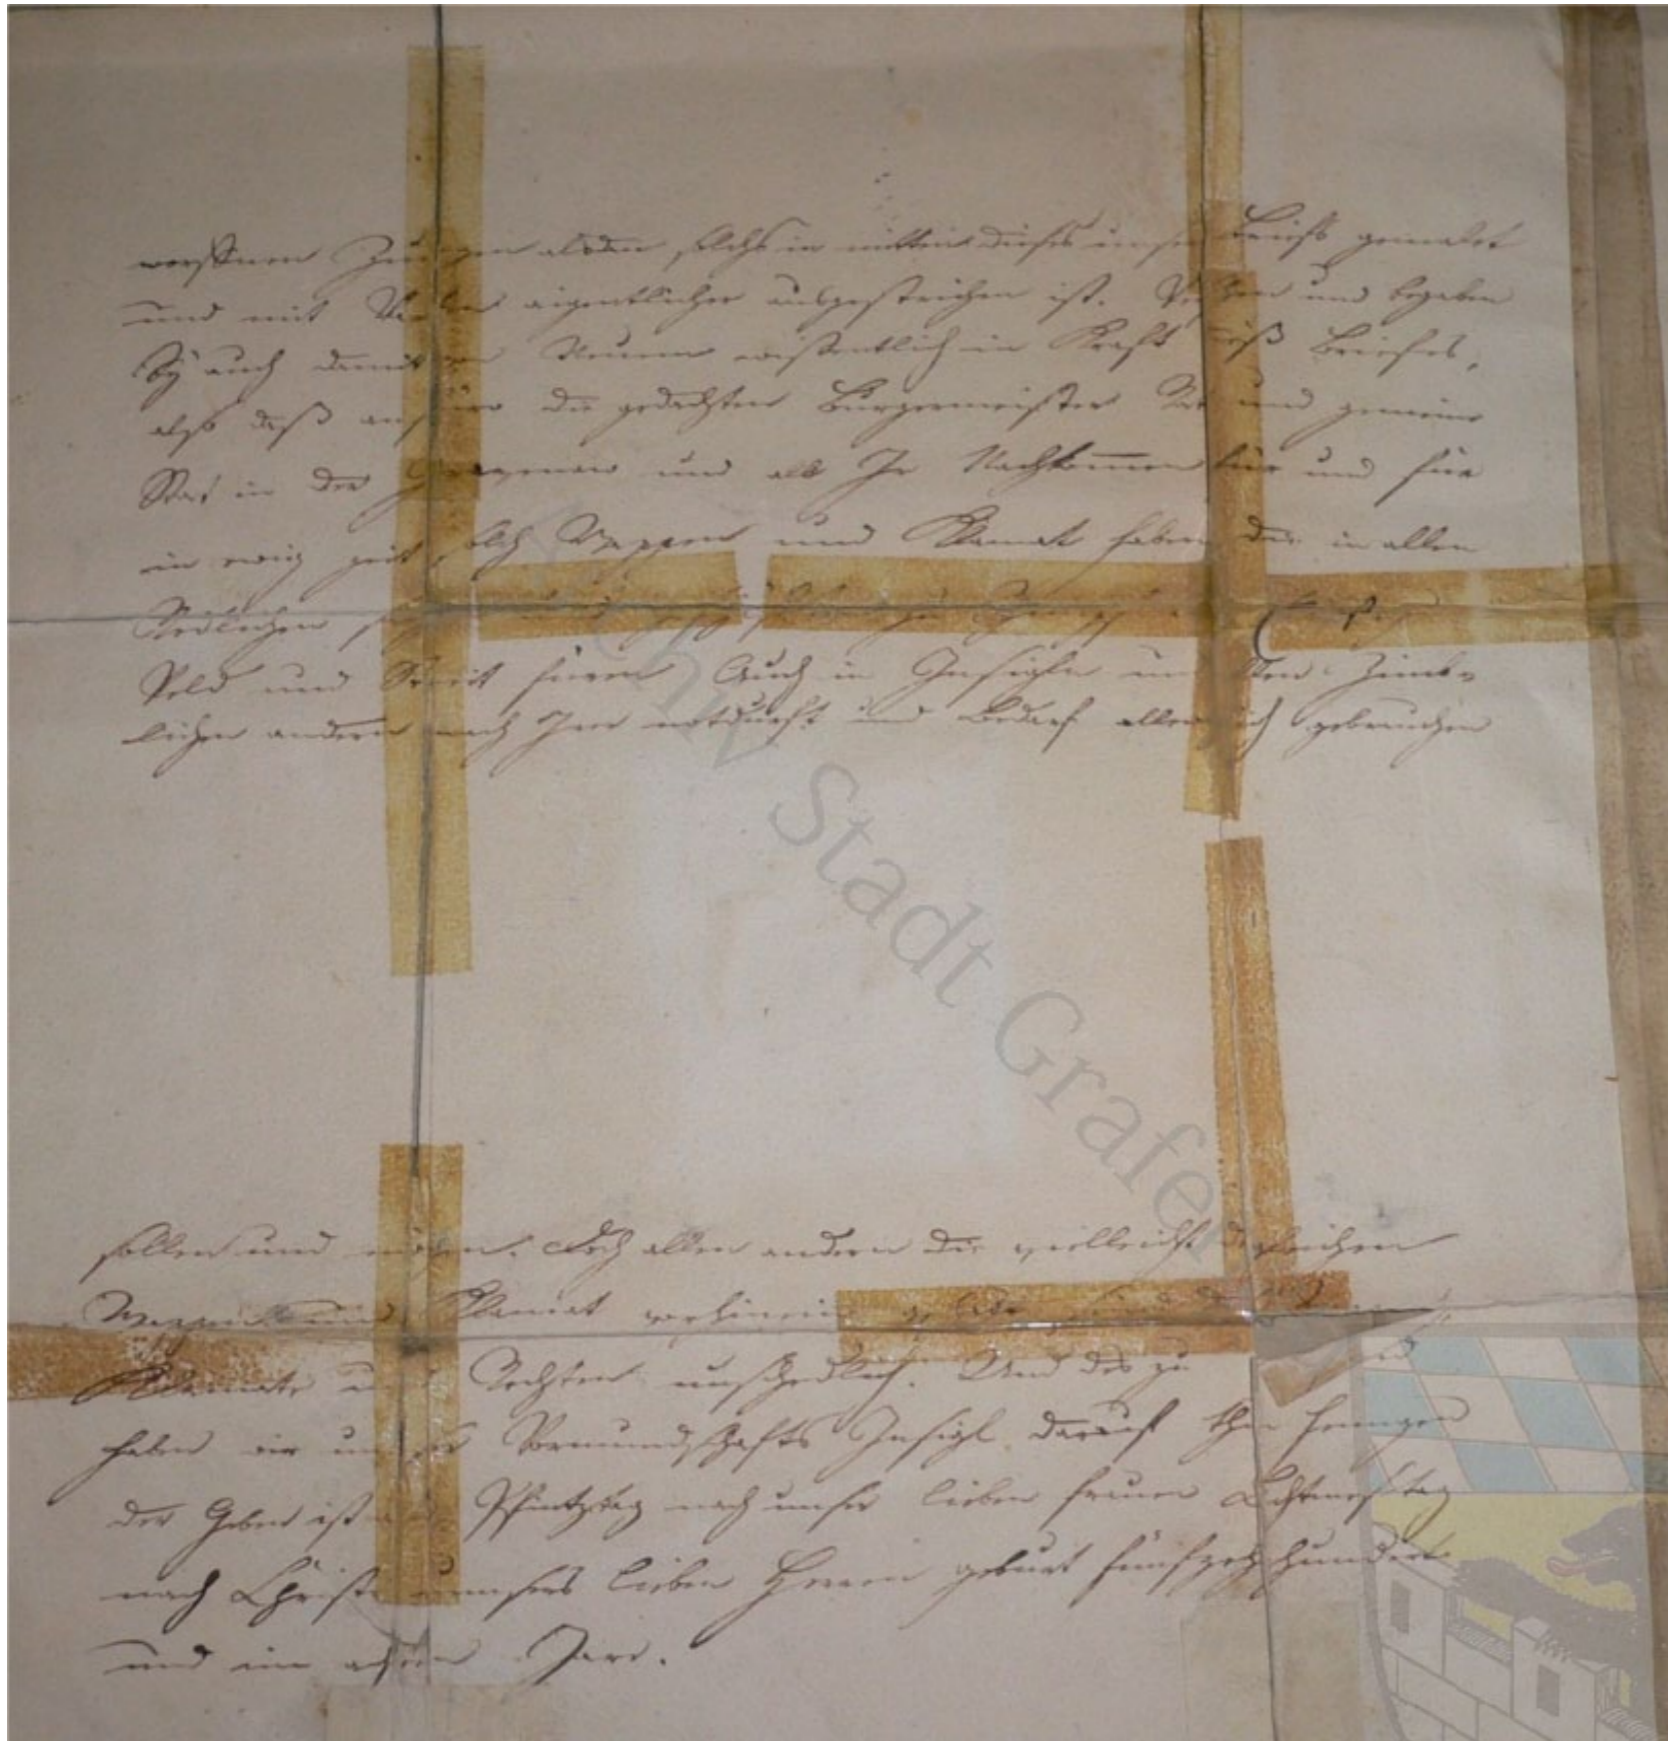 worffnen Zungen alsdann solchs in mitten dieses unser briefs gemalet
und mit Varben eigentlicher ausgestrichen ist. Verleihen und begeben
Sy auch damit von Neuem wissentlich in Kraft diß Briefes,
also daß an die gedachten Burgermeister Rat und gemeine
Stat in der Gravenaw und alle Ir Nachkommen für und für
in ewig zeit solch Wappen und Klainat haben das in allen
Redlichen
Veld und Streit füren Auch in Insigln und Zimb-
lichen andern nach Irer notdurft und Bedarf allen sich gebrauchen
sollen und mögen. Doch allen andern die vielleicht dergleichen
Wappen und Klainat vorhinein
Klainate und Rechten unschedlich. Und des zu
haben wir unser Vormundschafts Insigl darauf thun hengen
der Geben ist Pfintztag nach unser lieben frauen Lichtmesstag
nach Christi unnsers lieben Herrn geburt fünfzechhundert
und im achten Jare.
Archiv Stadt Grafen